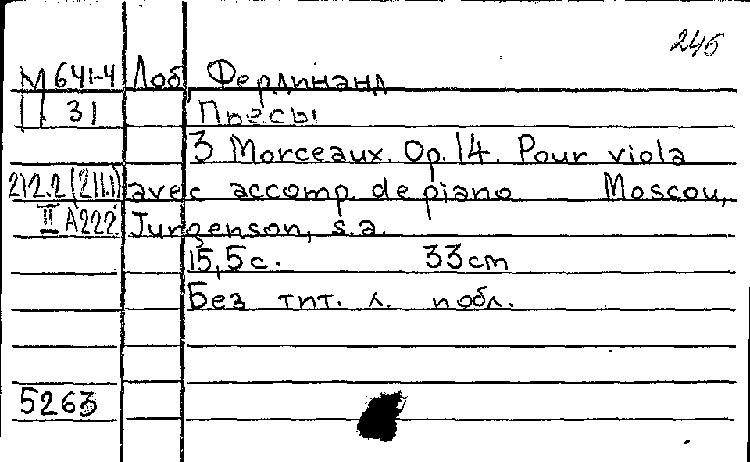 246
М 641-4 Лоб, Фердинанд
П 31 Пьесы
3 Morceaux. Op. 14. Pour viola
212.2 (211.1) avec accomp. de piano Moscou,
II A222 Jurgenson, s.a.
15,5с. 33cm
Без тит. л. и обл.
5263